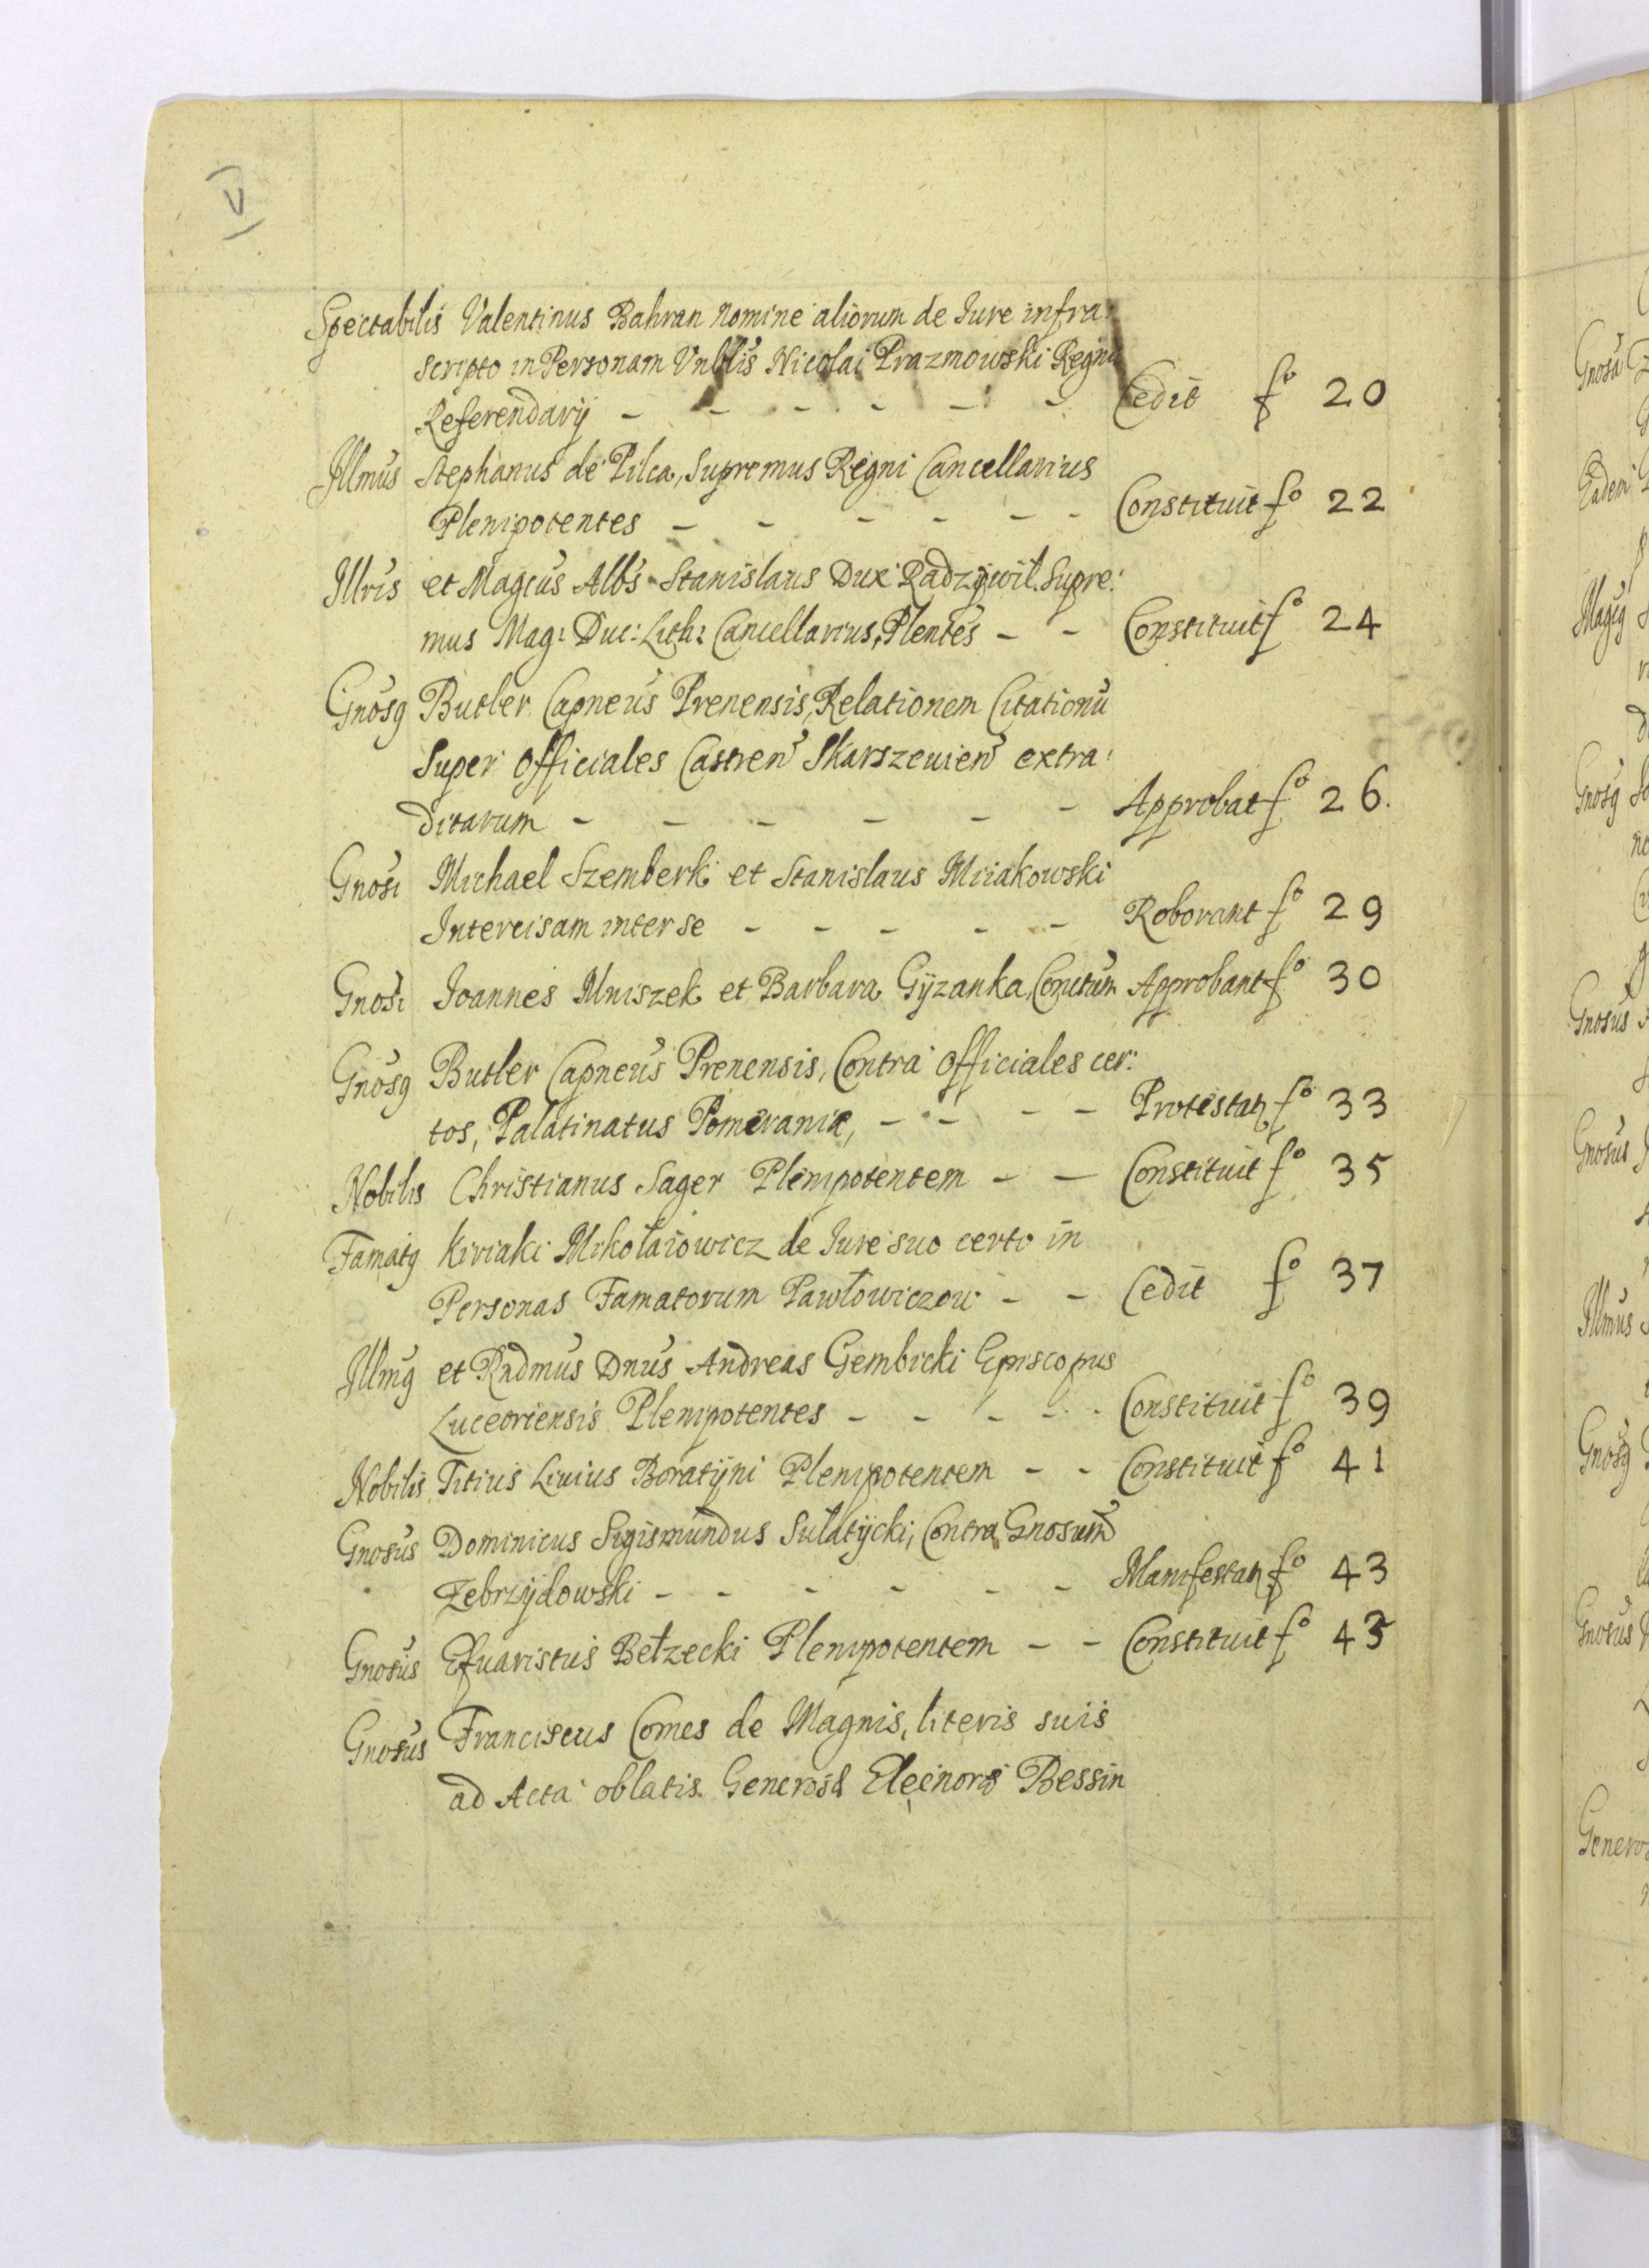 Spectabilis Valentinus Bahran nomine aliorum de Iure infra:
scripto in Personam Vnblis Nicolai Prazmowski Regni
Referendarij - - - - - - Cedit fo 20
Illmus Stephanus de Pilca, Supremus Regni Cancellarius
Plenipotentes - - - - - - Constituit fo 22
Illris et Magcus Albs Stanislaus Dux Radzijwil. Supre:
mus Mag: Duc: Lith: Cancellarius, Plentes - - Constituit fo 24
Gnosg Butler Capneus Prenensis, Relationem Citationu
Super Officiales Castren Skarszewien extra:
ditarum - - - - - - Approbat fo 26.
Gnosi Michael Szemberk et Stanislaus Miiakowski
Intercisam inter se - - - - - Roborant fo 29
Gnosi Joannes Mniszek et Barbara Gÿzanka, Conctum Approbant fo 30
Gnosg Butler Capneus Prenensis, Contra Officiales cer:
tos, Palatinatus Pomeraniæ, - - - - Protestatz fo 33
Nobilis Christianus Sager Plenipotentem - - Constituit fo 35
Famatg Kiriaki Mikołaiowicz de Iure suo certo in
Personas Famatorum Pawłowiczow - - Cedit fo 37
Illmg et Rndmus Dnus Andreas Gembicki Episcopus
Luceoriensis Plenipotentes - - - - - Constituit fo 39
Nobilis Titius Liuius Boratÿni Plenipotentem - - Constituit fo 41
Gnosus Dominicus Sigismundus Sulatÿcki, Contra Gnosum
Zebrzÿdowski - - - - - - Manifestatz fo 43
Gnosus Efuaristus Bełzecki Plenipotentem - - Constituit fo 45
Gnosus Franciscus Comes de Magnis, literis suis
ad Acta oblatis. Generosæ Eleinoræ Bessin